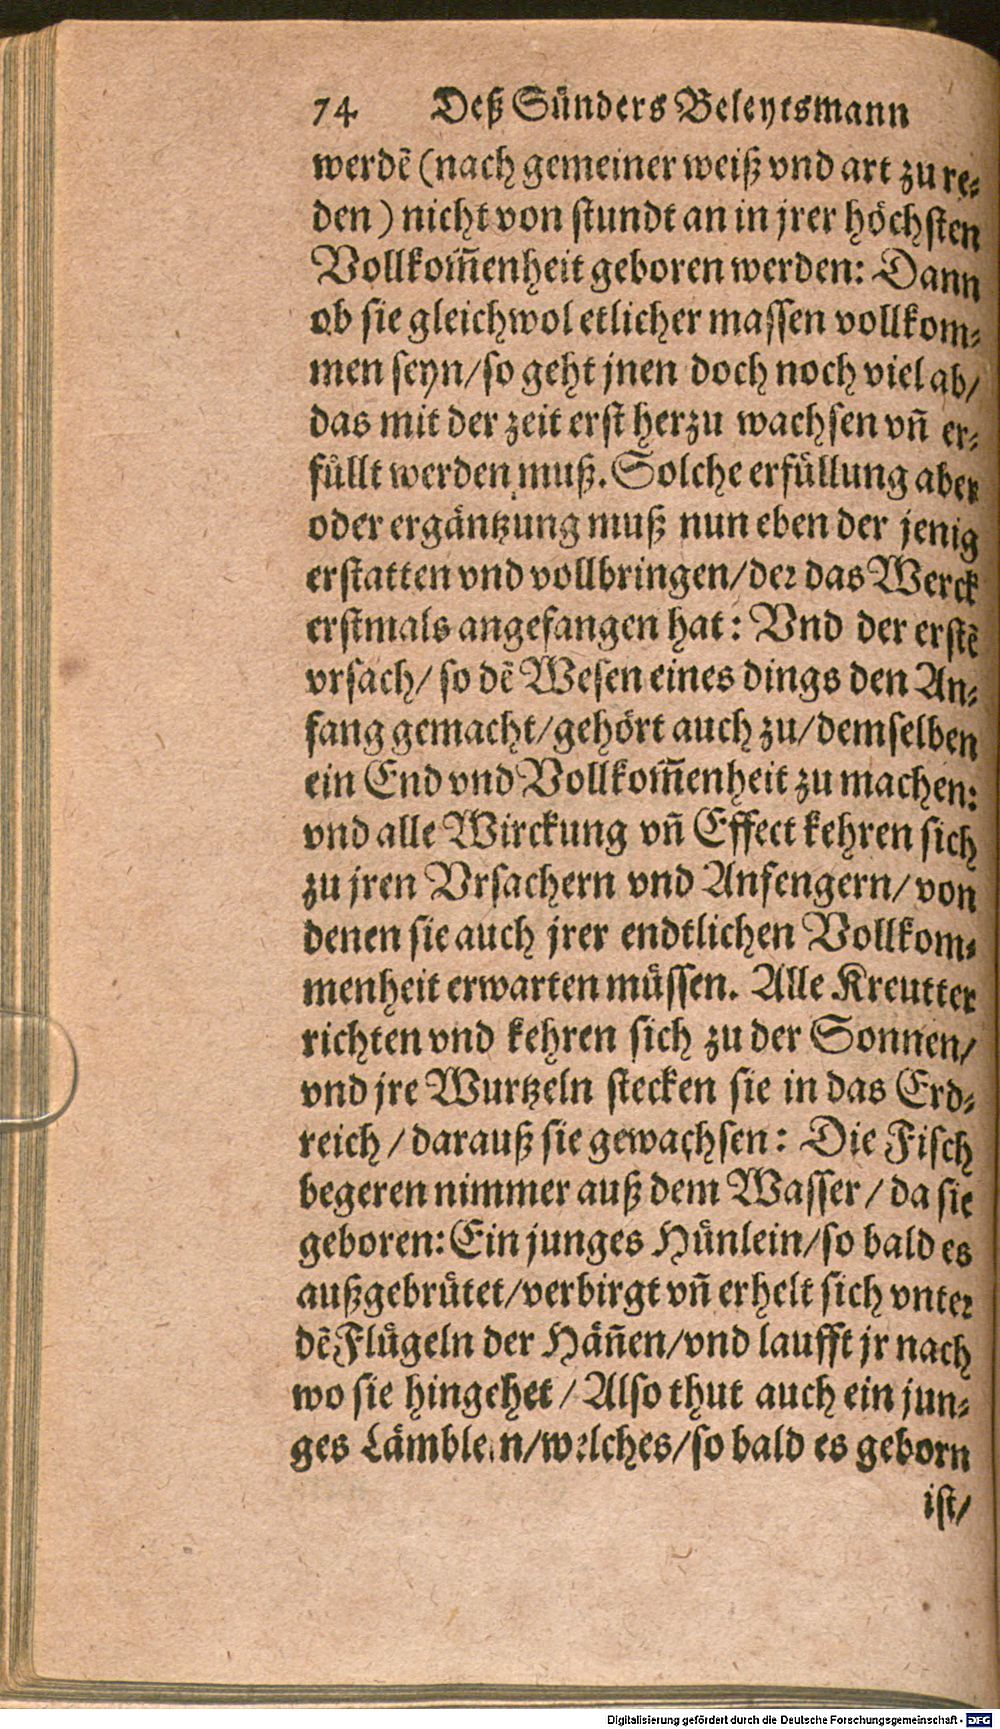 74 Deß Sünders Beleytsmann
werdẽ (nach gemeiner weiß vnd art zu re⸗
den) nicht von stundt an in jrer höchsten
Vollkom̃enheit geboren werden: Dann
ob sie gleichwol etlicher massen vollkom⸗
men seyn/so geht jnen doch noch viel ab/
das mit der zeit erst herzu wachsen vñ er⸗
füllt werden muß. Solche erfüllung aber
oder ergäntzung muß nun eben der jenig
erstatten vnd vollbringen/der das Werck
erstmals angefangen hat: Vnd der erstẽ
vrsach/ so dẽ Wesen eines dings den An⸗
fang gemacht/gehört auch zu/demselben
ein End vnd Vollkom̃enheit zu machen:
vnd alle Wirckung vñ Effect kehren sich
zu jren Vrsachern vnd Anfengern/ von
denen sie auch jrer endtlichen Vollkom⸗
menheit erwarten müssen. Alle Kreutter
richten vnd kehren sich zu der Sonnen/
vnd jre Wurtzeln stecken sie in das Erd⸗
reich / darauß sie gewachsen: Die Fisch
begeren nimmer auß dem Wasser / da sie
geboren: Ein junges Hünlein/so bald es
außgebrütet/verbirgt vñ erhelt sich vnter
dẽ Flügeln der Häñen/vnd laufft jr nach
wo sie hingehet / Also thut auch ein jun⸗
ges Lämblein/welches/so bald es geborn
ist/
Digitalisierung gefördert durch die Deutsche Forschungsgemeinschaft - DFG